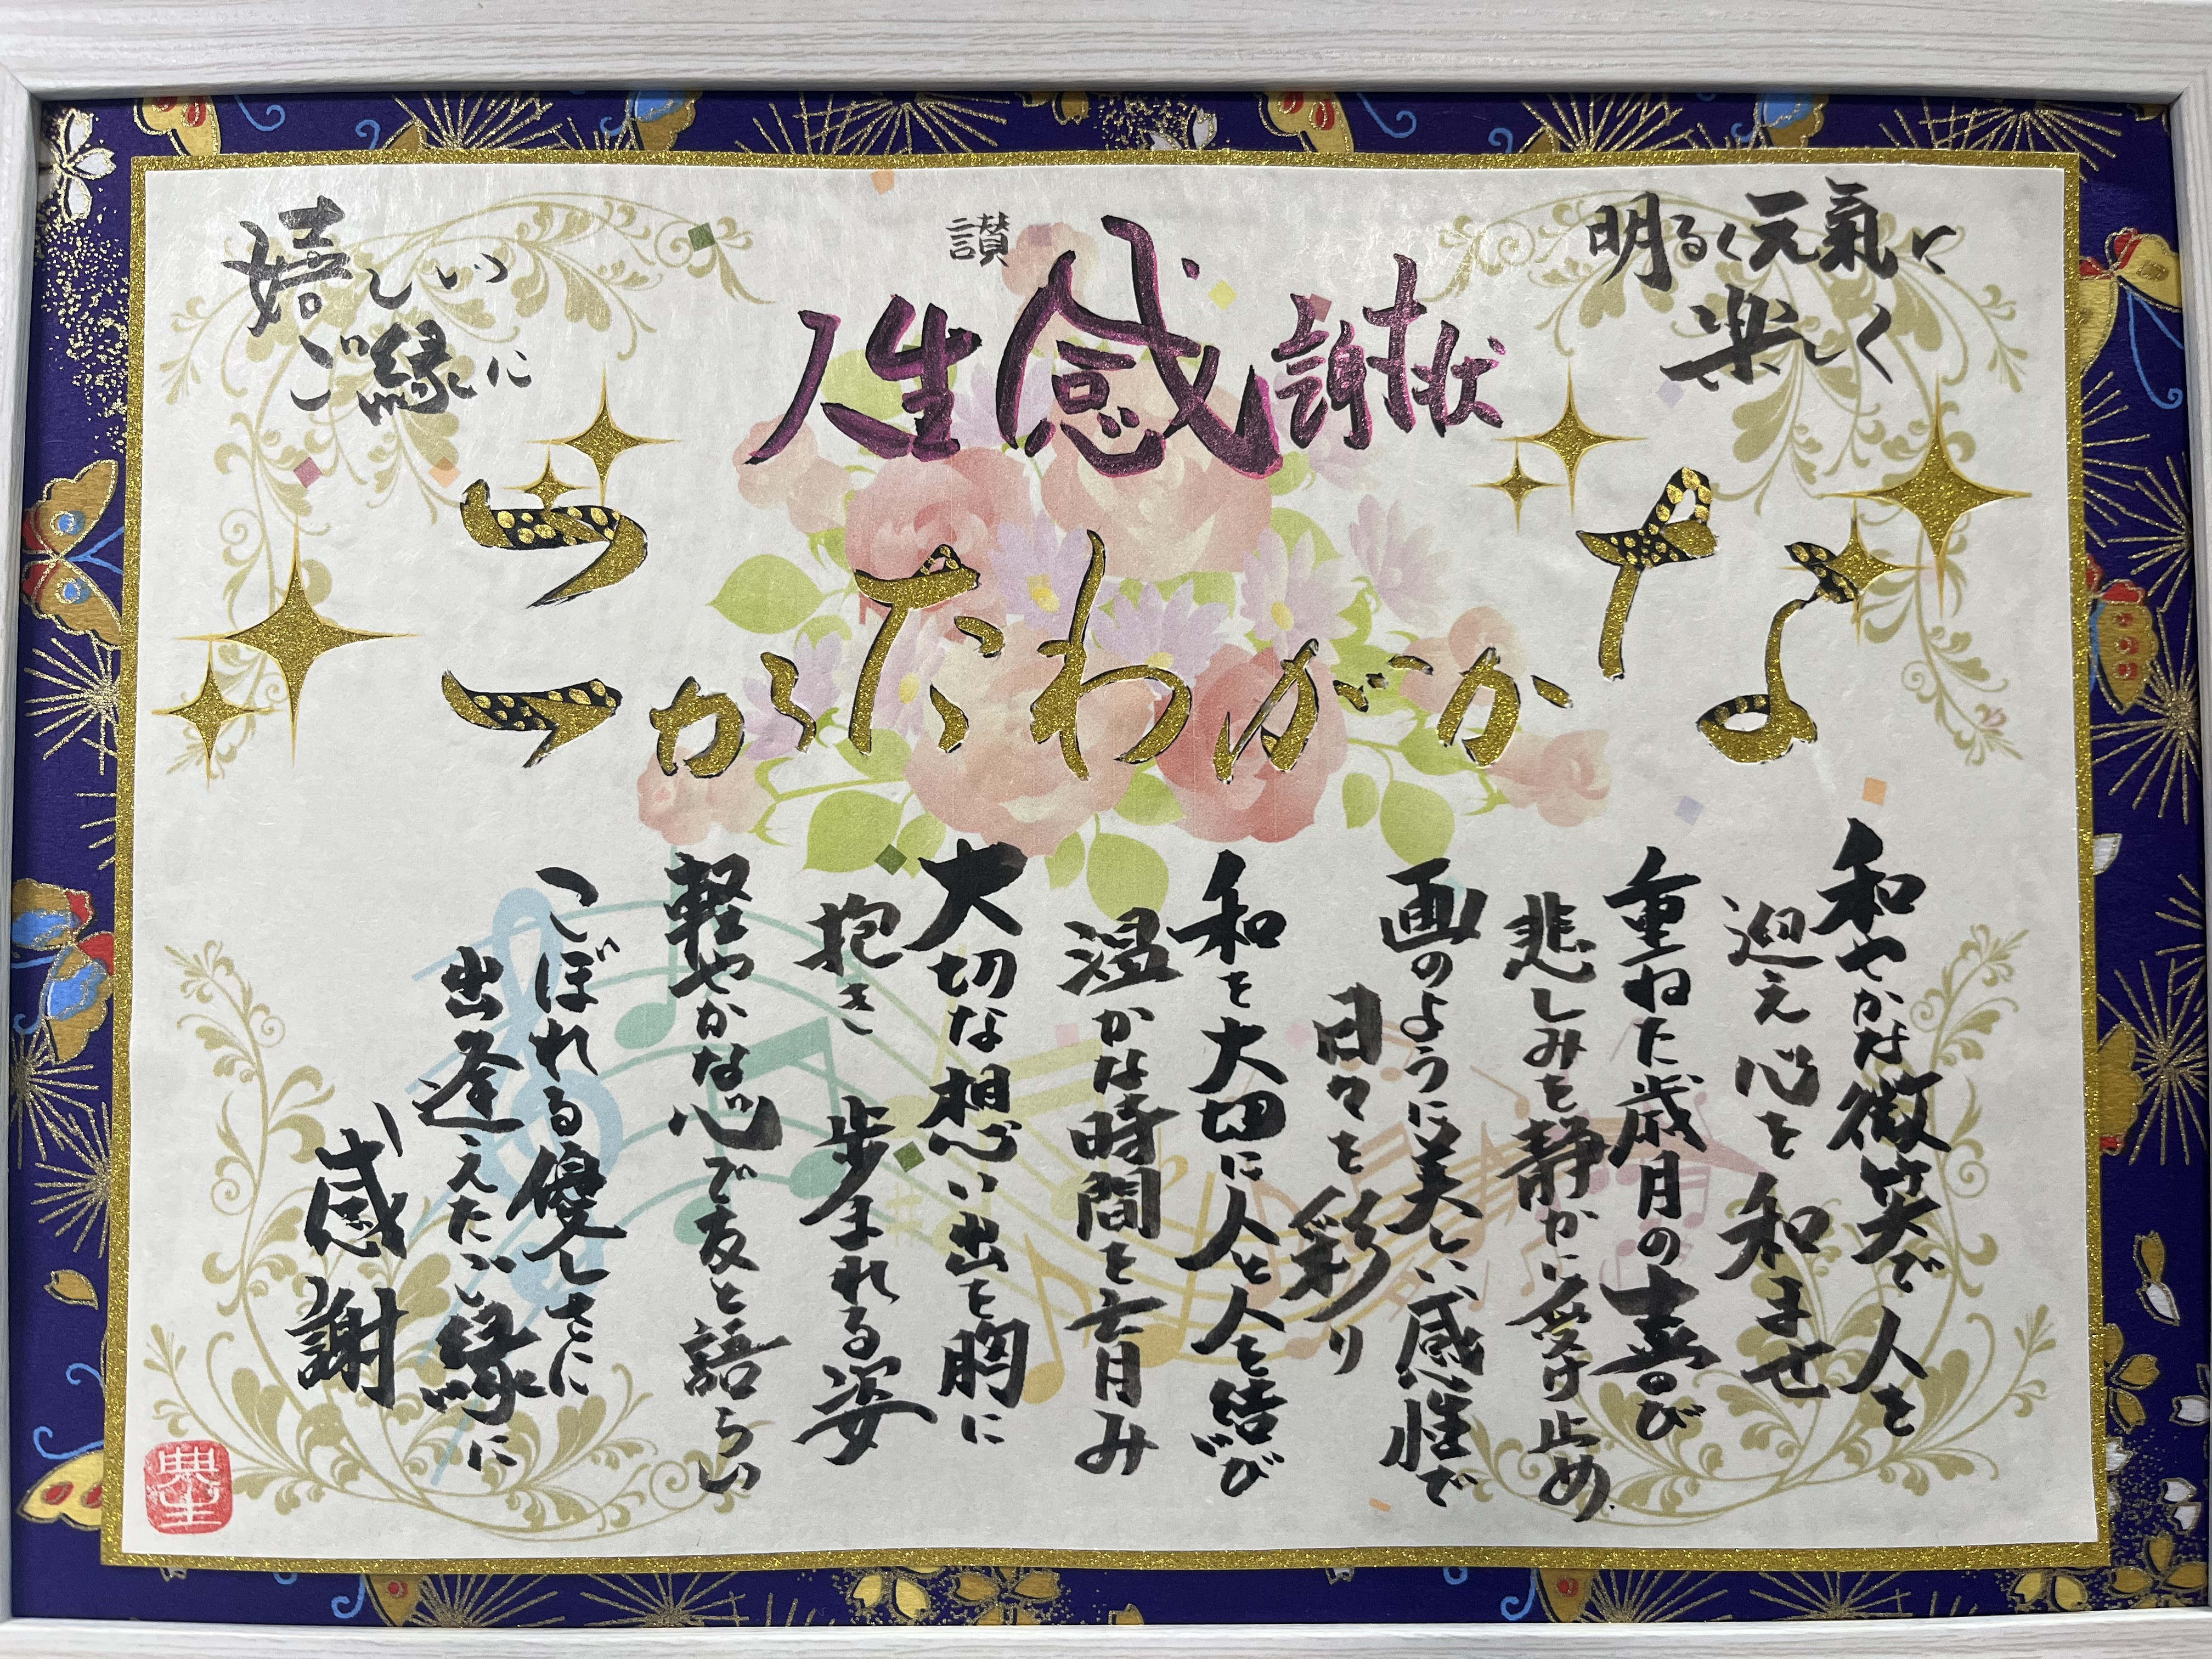 讃
人生感謝状
明るく元氣に
楽しく
嬉しい
ご縁に
なかがわたかこ
和やかな微笑で人を
迎え心を和ませ
重ねた歳月の喜び
悲しみを静かに受け止め
画のように美しい感性で
日々を彩り
和を大切に人と人を結び
温かな時間を育み
大切な想い出を胸に
抱き 歩まれる姿
軽やかな心で友と語らい
こぼれる優しさに
出逢えたご縁に
感謝